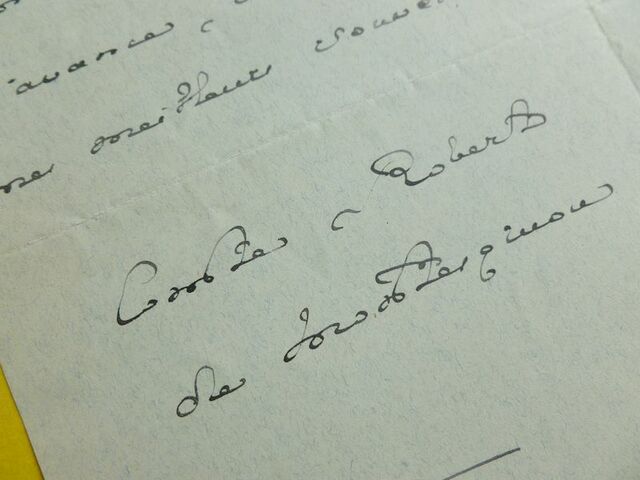 avance,
meilleurs souve
Comte Robert
de Montesquiou